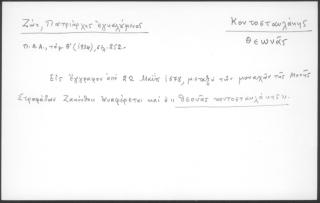 Ζώη, Πατριάρχης ἐγκαλούμενος
Κοντοσταυλάκης
Θεωνᾶς
Π.Ε.Λ., τόμ. Θ' (1934), σελ. 252.
Εἰς ἔγγραφον ἀπὸ 22 Μαΐου 1578, μεταξὺ τῶν μοναχῶν τῆς Μονῆς
Στροφάδων Ζακύνθου ἀναφέρεται καὶ ὁ "Θεονᾶς κοντοσταυλάκης".